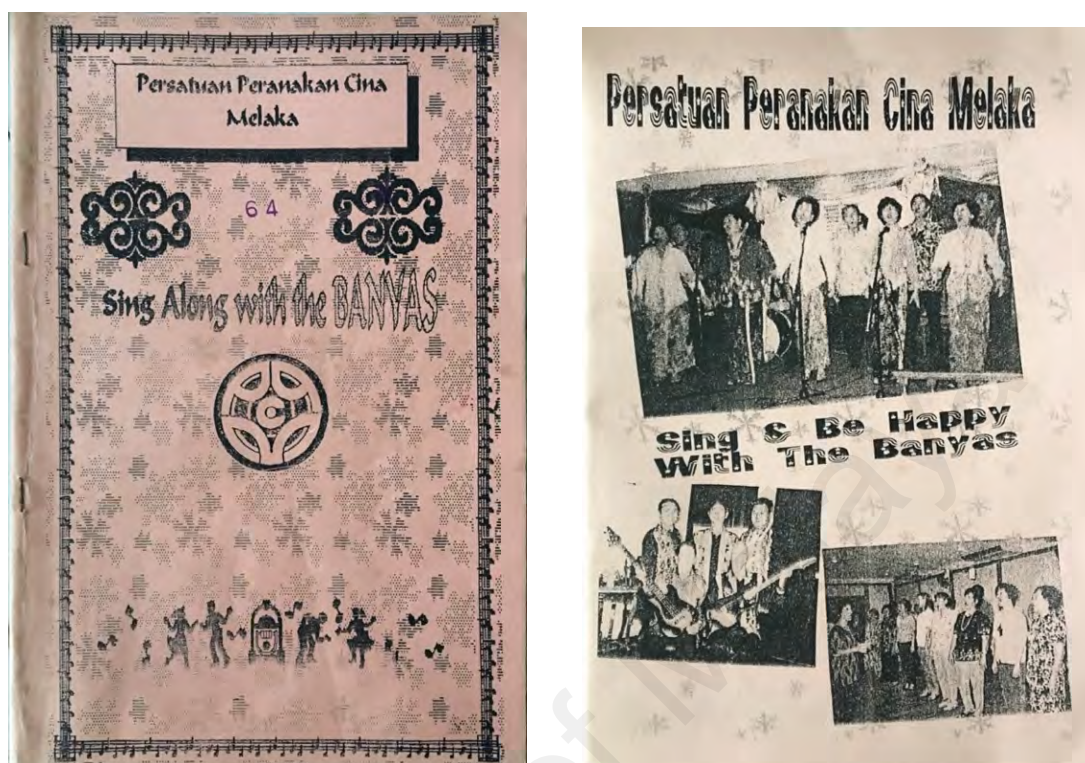 Persatuan Peranakan Cina
Melaka
64
Sing Along with the BANYAS
Persatuan Peranakan Cina Melaka
Sing & Be Happy
With The Banyas